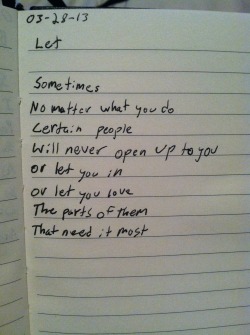 03-28-13
Let
Sometimes
No matter what you do
Certain people
Will never open up to you
or let you in
or let you love
The parts of them
That need it most